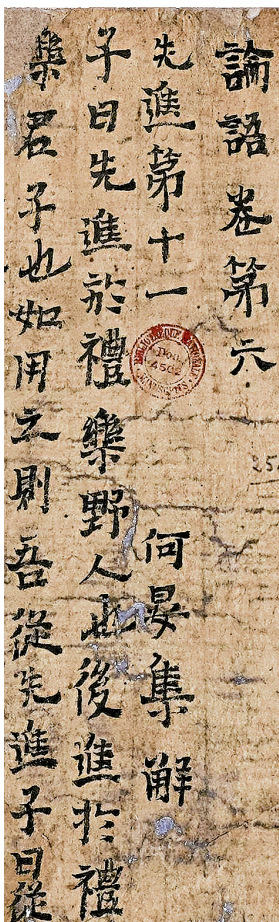 論語卷第六
先進第十一 何晏集解
子曰先進於禮樂野人也後進於禮
樂君子也如用之則吾從先進子曰從